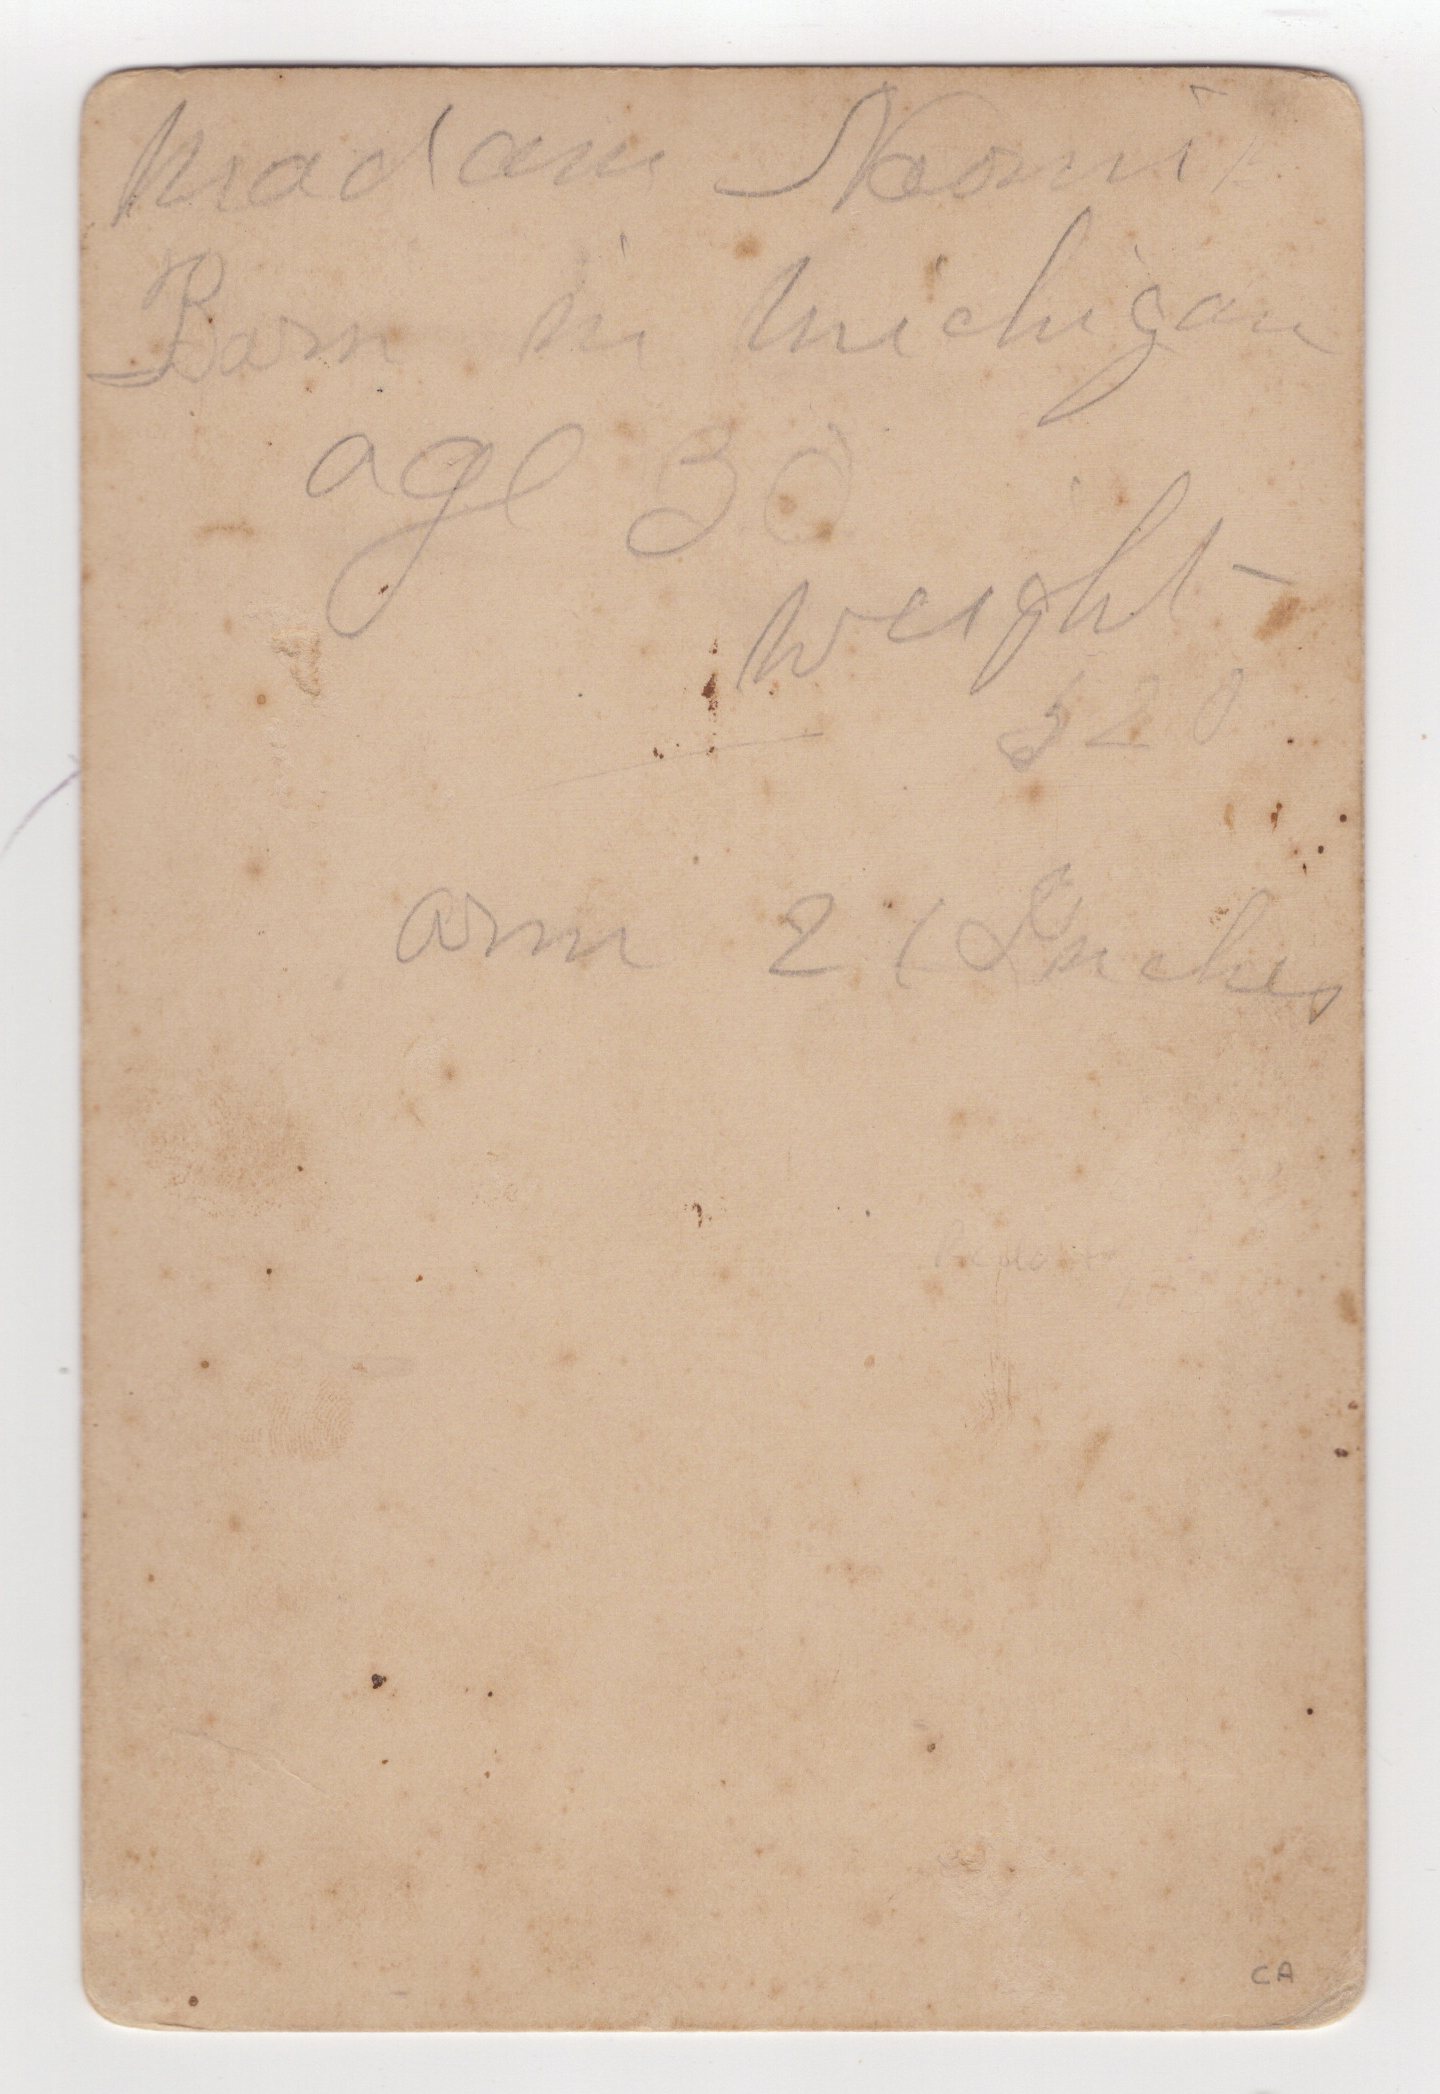 Madam Naomi
Born in Michigan
age 30
Weight
520
arm 21 Inches
CA